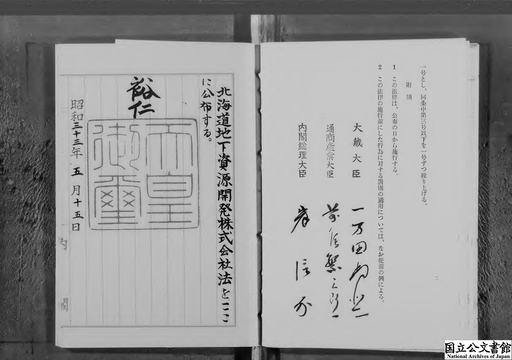 北海道地下資源開発株式会社法をここ
に公布する。
裕仁
天皇
御璽
昭和三十三年五月十五日
内閣
一号とし、同条中第三号以下を一号ずつ繰り上げる。
附則
1 この法律は、公布の日から施行する。
2 この法律の施行前にした行為に対する罰則の適用については、なお従前の例による。
大蔵大臣 一万田尚登
通商産業大臣 前尾繁三郎
内閣総理大臣 岸信介
国立公文書館
National Archives of Japan